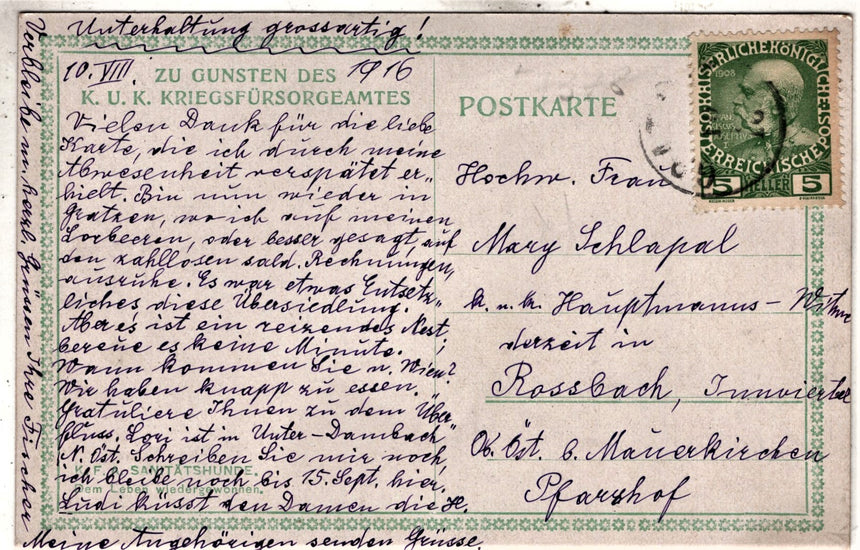 Unterhaltung grossartig!
10. VIII. 1916
ZU GUNSTEN DES
K. U. K. KRIEGSFÜRSORGEAMTES
Vielen Dank für die liebe
Karte, die ich durch meine
Abwesenheit verspätet er„
hielt. Bin nun wieder in
Gratzen, wo ich auf meinen
Lorbeeren, oder besser gesagt, auf
den zahllosen Rechnungen,
ausruhe. Es war etwas Entsetz„
liches, diese Übersiedlung.
Aber es ist ein reizendes Nest;
bereue es keine Minute.
Wann kommen Sie n. Wien?
Wir haben knapp zu essen.
Gratuliere Ihnen zu dem Über„
fluss. Lori ist in Unter-Dambach
N. Öst. Schreiben Sie mir noch,
K. F. A. SANITÄTSHUNDE.
ich bleibe noch bis 15. Sept. hier.
Dem Leben wiedergewonnen.
Ludi küsst den Damen die H.
Meine Angehörigen senden Grüsse.
Verbleibe m. herzl. Grüssen Ihre Fischer
POSTKARTE
KAISERLICHEKÖNIGLICHE
ÖSTERREICHISCHE POST
1908
5 HELLER 5
Hochw. Frau
Mary Schlapal
k. u. k. Hauptmanns-Witwe
derzeit in
Rossbach, Innviertel
Ob. Öst. b. Mauerkirchen
Pfarrhof